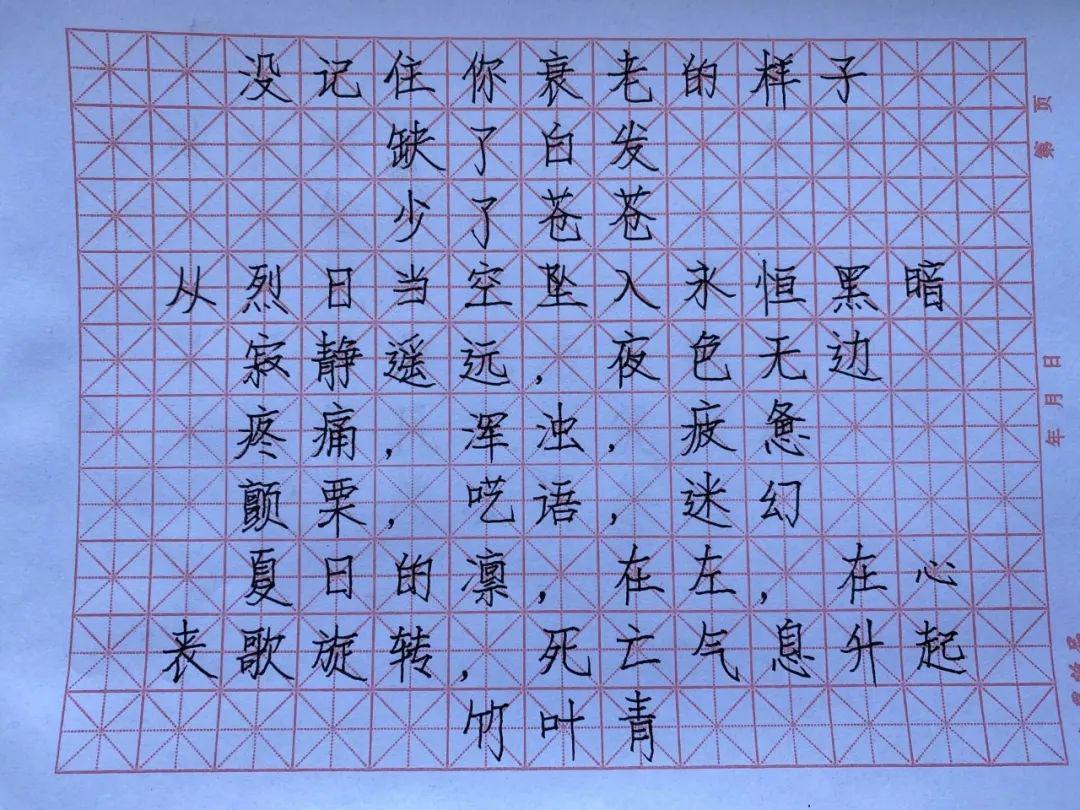 没记住你衰老的样子
缺了白发
少了苍苍
从烈日当空坠入永恒黑暗
寂静遥远，夜色无边
疼痛，浑浊，疲惫
颤栗，呓语，迷幻
夏日的凛，在左，在心
丧歌旋转，死亡气息升起
竹叶青
第 页
年 月 日